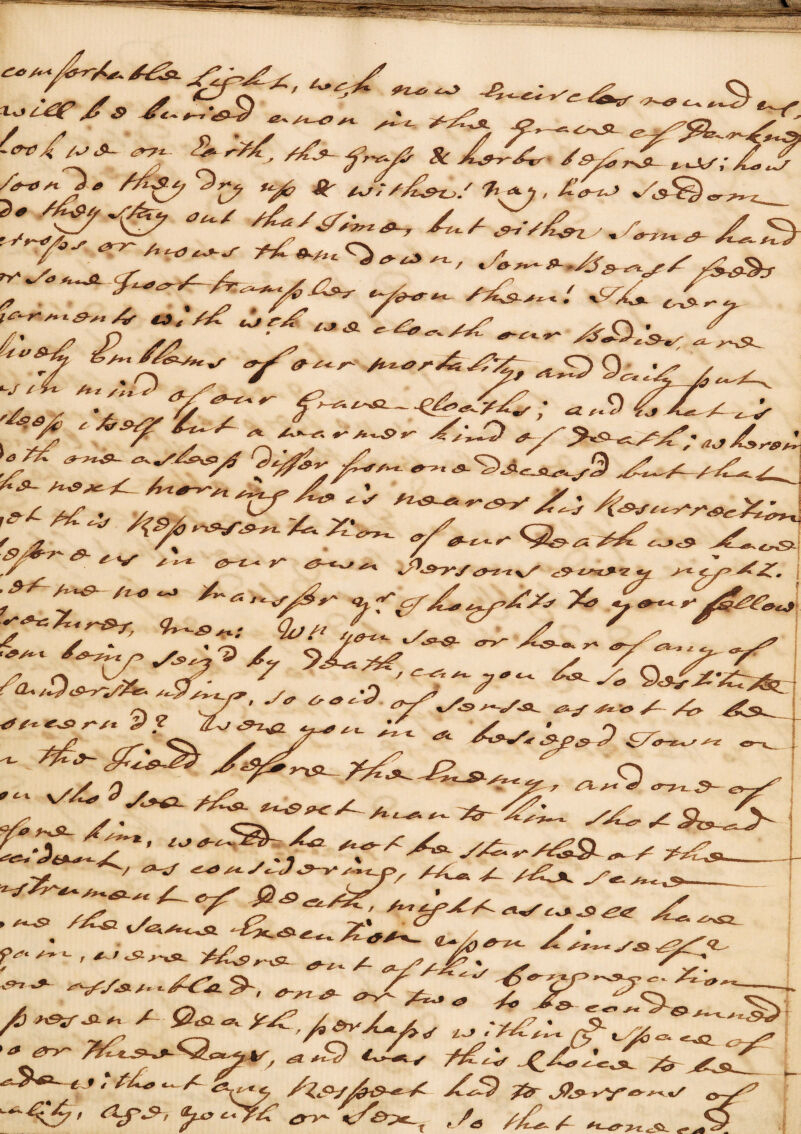 comfortable Light, wch now Encircles round us,
will be buried anon in the Grave of Darknes
Look we on Earth, the Grass & herbs before us; how
soon do they dry up & wither! Nay, how seldom
do they stay out that Time, but either some hand
crops or mows them down, some Beast feeds
or some Foot tramples upon them! The very
Garments with wch we cloath our Bodies, are
lively Emblems of our mortality, and daily put
us in mind of our Grave-Cloaths; and what is
sleep itself but a warmer kind of Death; wherein
doth one asleep differ from one deceas'd but that
the next morning he is nearer his Resurrection
yet this Representation of our Death we have
before us in our own Persons every night.
Let me now transfer yr Thoughts to your fellow
Creatures, Men: Wn you see or hear of any of
them being seiz'd by Death, can you be so destitute
of understanding, so void of sense as not to be
concern'd? Were you in a besieged Town or
in the Field before the Enemy, and one of
you sho'd see the next man to him shot dead
before him, would he not be startled at the
accident, as considering, that the same
instrument of Death, might as well have
done the same Execution upon himself?
again, were there out of this Congregation
here assembled, one or two to be condemned
present Death, perhaps within ye space of
two or three Days, and was this Choice to be
made without any Respect had to Persons of
quality, age, youth or Sex, so that none